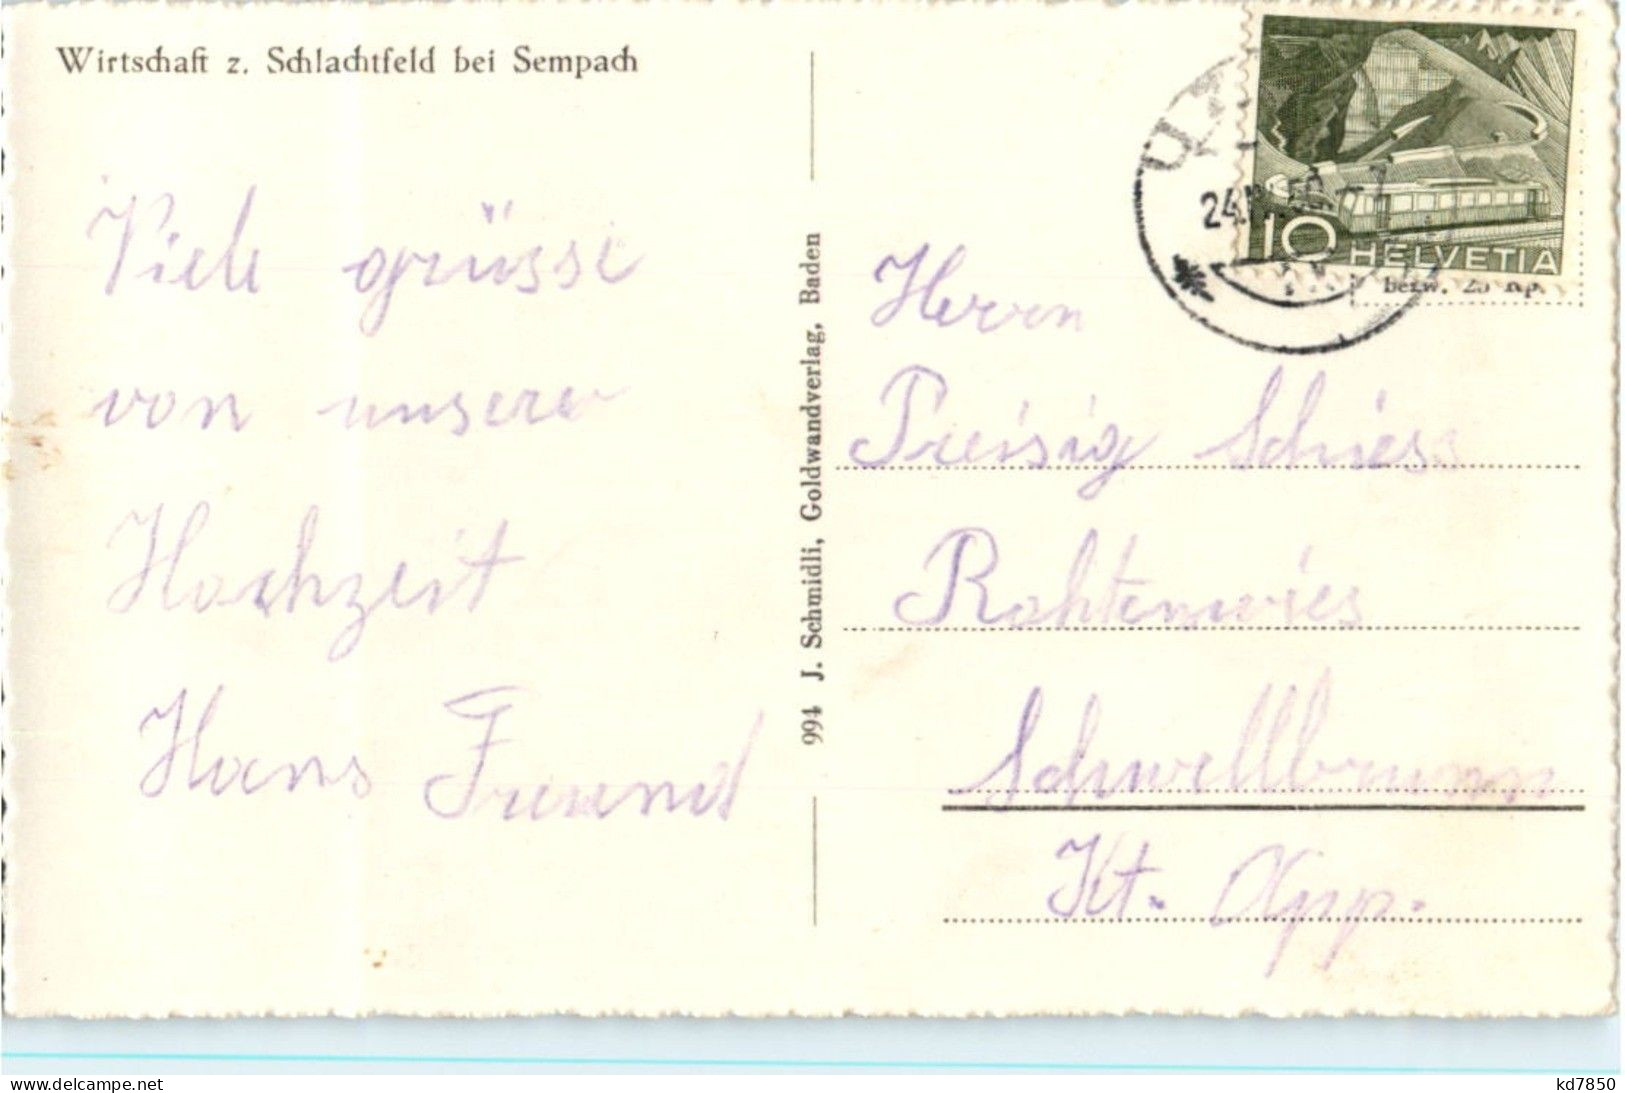 Wirtschaft z. Schlachtfeld bei Sempach
Viele grüsse
von unserer
Hochzeit
Hans Freund
994 J. Schmidli, Goldwandverlag, Baden
24.
10 HELVETIA
bezw. 25 Rp.
Herrn
Preisig Schiess
Rohtenwies
Schwellbrunn
Kt. App.
www.delcampe.net
kd7850